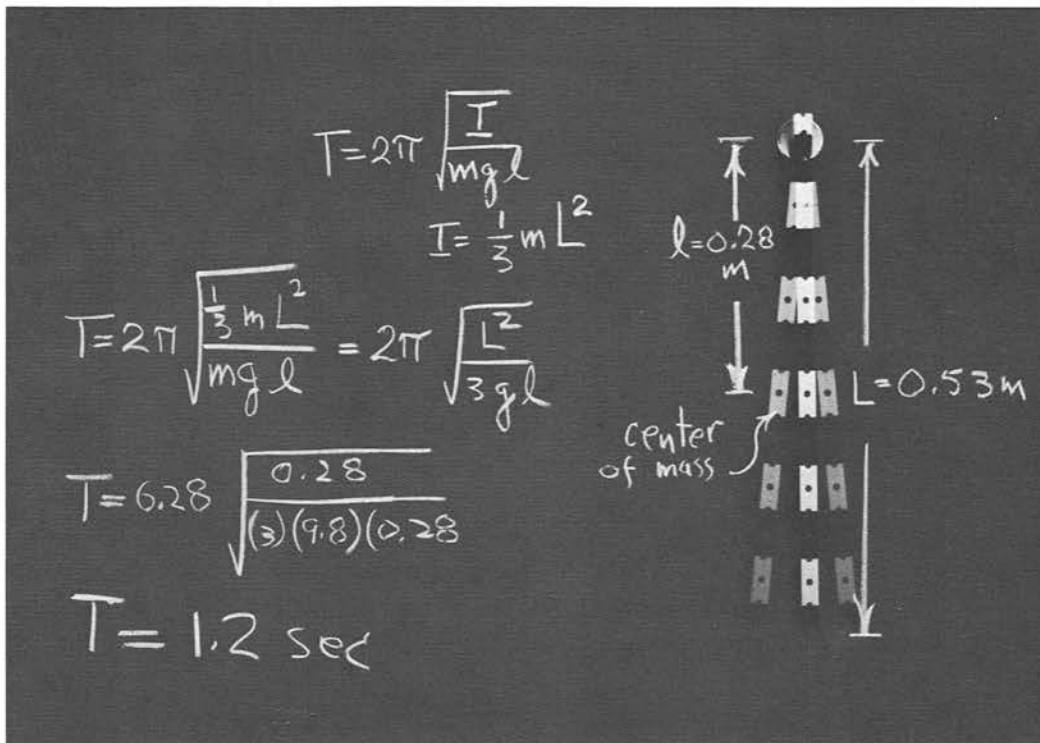 T=2π √(I/mgl)
I=1/3 mL²
T=2π √(1/3 mL²/mgl) = 2π √(L²/3gl)
T=6.28 √(0.28/(3)(9.8)(0.28))
T=1.2 sec
l=0.28
m
L=0.53m
center
of mass